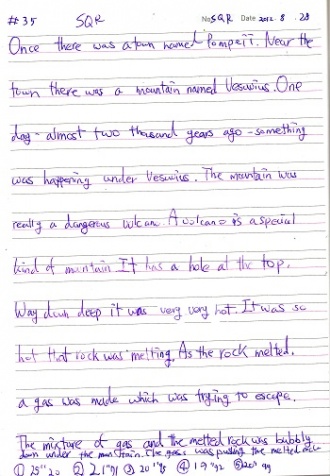 #35 SQR No SQR Date 2012. 8. 28
Once there was a town named Pompeii. Near the
town there was a mountain named Vesuvius. One
day - almost two thousand years ago - something
was happening under Vesuvius. The mountain was
really a dangerous volcano. A volcano is a special
kind of mountain It has a hole at the top.
Way down deep it was very very hot. It was so
hot that rock was melting. As the rock melted.
a gas was made which was trying to escape.
The mixture of gas and the melted rock was bubbly
down under the mountain. The gas was pushing the melted rock
① 25"20 ② 21"91 ③ 20"98 ④ 19"92 ⑤